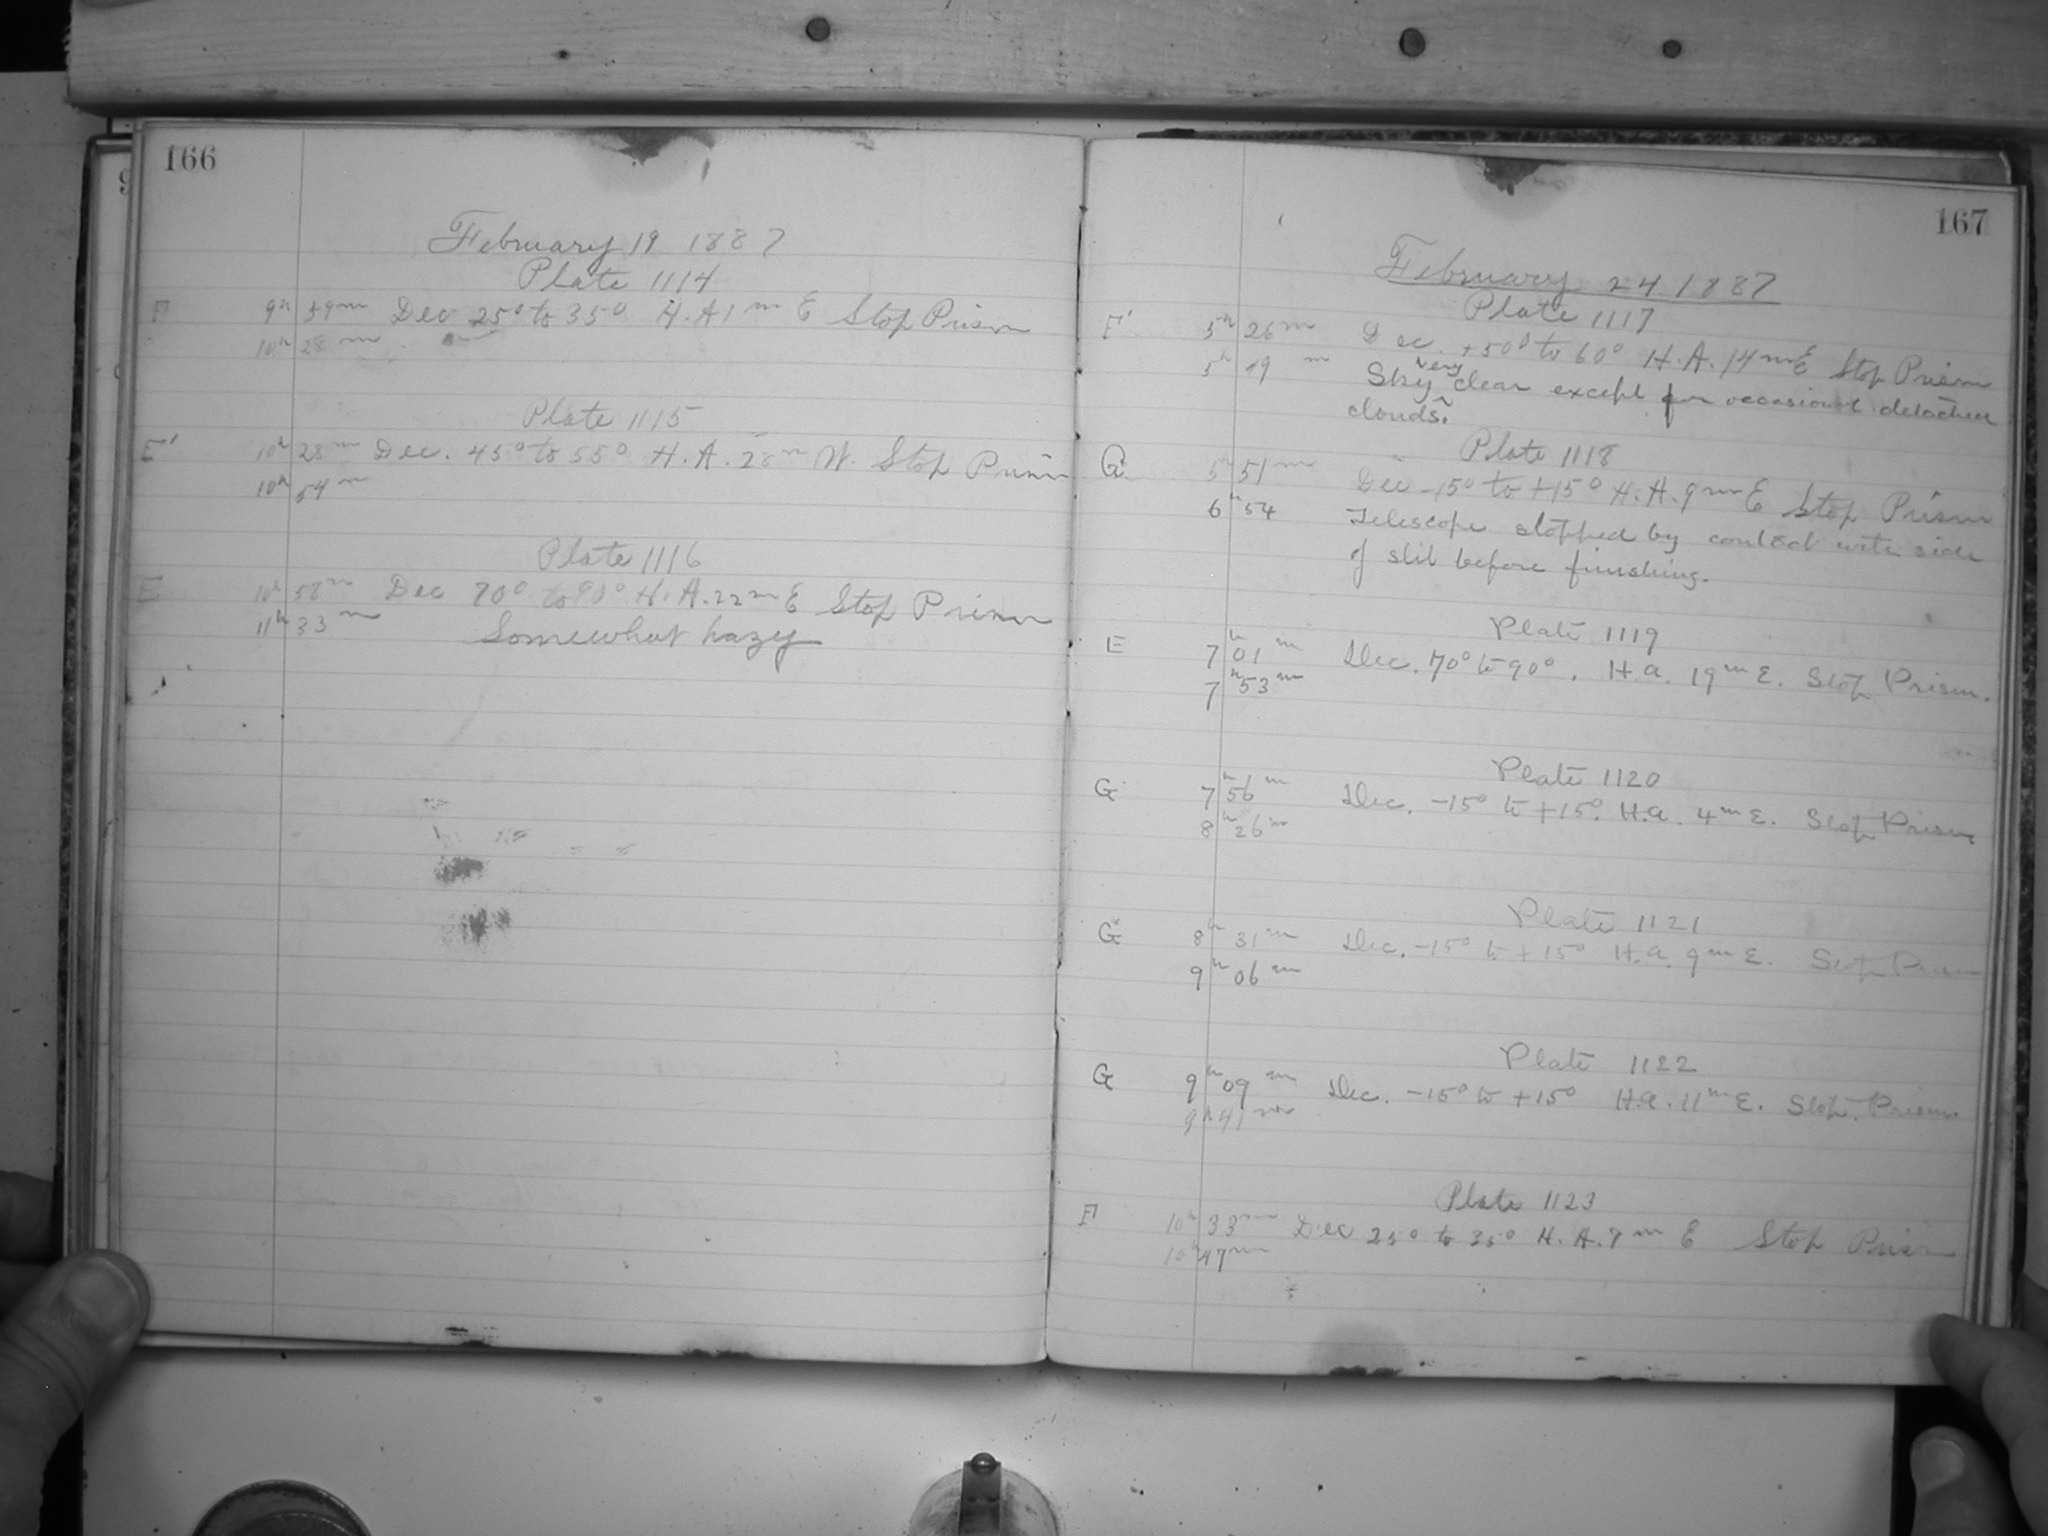 166
February 19 1887
Plate 1114
F 9h 59m Dec 25° to 35° H.A 1m E Stop Prism
10h 28m
Plate 1115
E' 10h 28m Dec. 45° to 55° H.A. 28m W. Stop Prism
10h 54m
Plate 1116
E 10h 58m Dec 70° to 90° H.A. 22m E Stop Prism
11h 33m Somewhat hazy
167
February 24 1887
Plate 1117
E' 5h 26m Dec. +50° to 60° H.A. 14m E Stop Prism
5h 49m Sky very clear except for occasional detached
clouds.
Plate 1118
G 5h 51m Dec -15° to +15° H.A. 9m E Stop Prism
6h 54 Telescope stopped by contact with side
of slit before finishing.
Plate 1119
E 7h 01m Dec. 70° to 90°. H.a. 19m E. Stop Prism.
7h 53m
Plate 1120
G 7h 56m Dec. -15° to +15°. H.a. 4m E. Stop Prism
8h 26m
Plate 1121
G 8h 31m Dec. -15° to +15° H.a. 9m E. Stop Prism
9h 06m
Plate 1122
G 9h 09m Dec. -15° to +15° H.a. 11m E. Stop. Prism.
9h 41m
Plate 1123
F 10h 33m Dec 25° to 35° H.A. 7m E Stop Prism
10h 47m